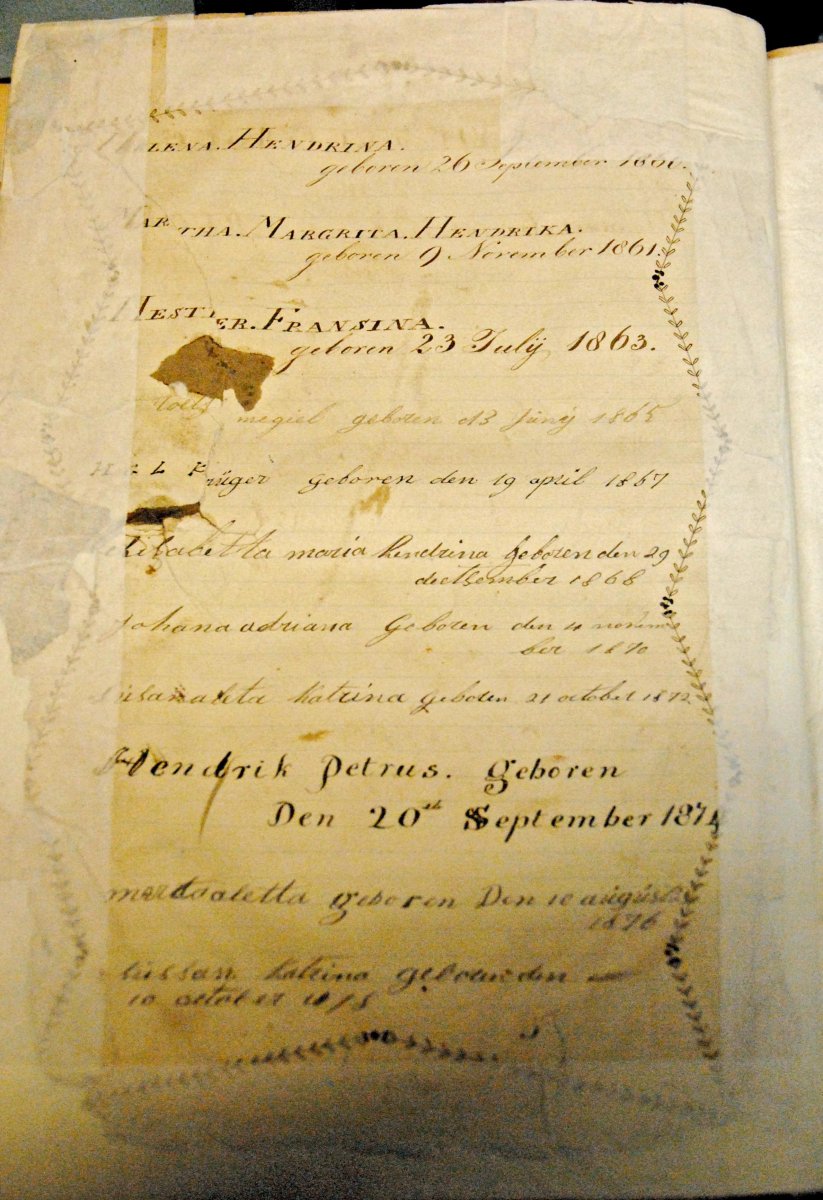 LENA. HENDRINA.
geboren 26 September
MARTHA. MARGRITA. HENDRIKA.
geboren 9 November 1861.
HESTER. FRANSINA.
geboren 23 Julij 1863.
megiel geboren d13 Junij 1865
geboren den 19 april 1867
Elisabetta maria hendrina geboren den 29
dectsember 1868
Johana adriana geboren den 4 novem
ber 1870
katrina geboren 21 october 1872
Hendrik Petrus. geboren
Den 20th September 1874
geboren Den 10 augustus
1876
sussan katrina geboren den
10 october 1878